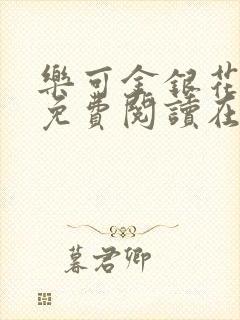 樂可金銀花
免費閱讀在
暮君卿